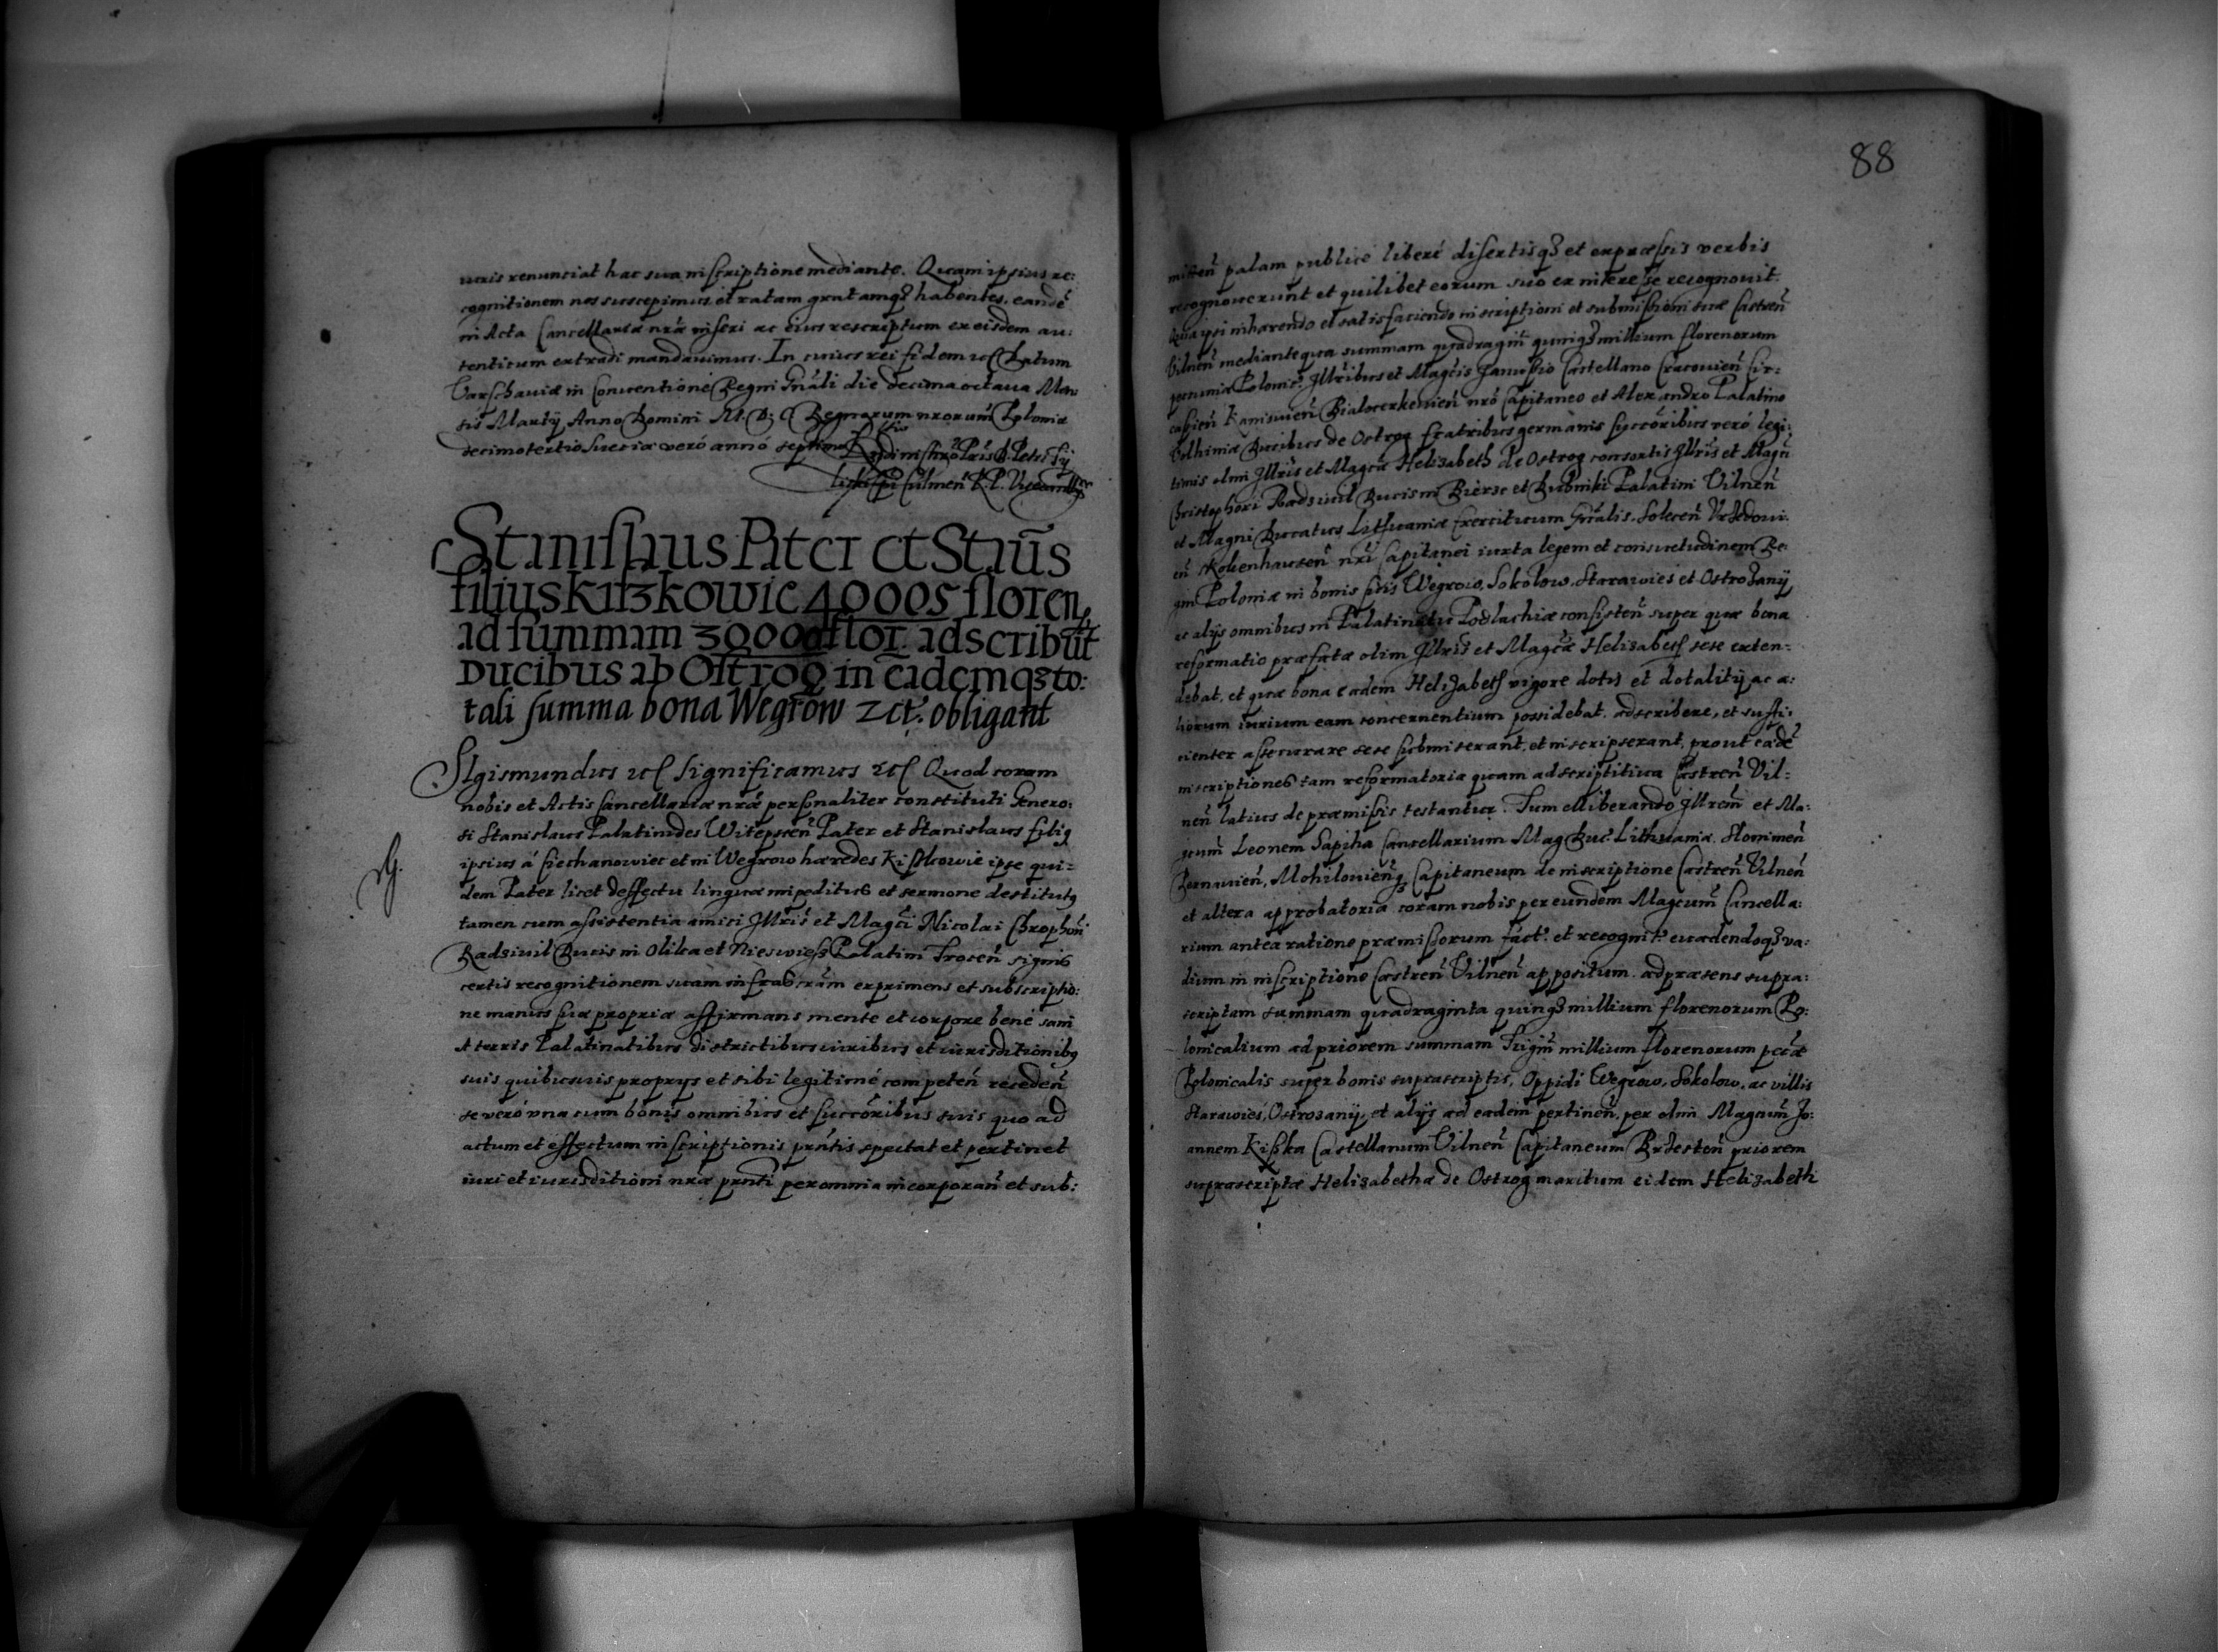 iuris renunciat hac sua inscriptione mediante. Quam ipsius re:
cognitionem nos suscepimus et ratam gratamq3 habentes, eandẽ
in Acta Cancellariæ nrӕ inseri ac eius rescriptum ex eisdem au:
tenticum extradi mandavimus. In cuius rei fidem etc Datum
Varschaviæ in Conventione Regni Gñali die decima octava Men
sis Martij Anno Domini M. D. C Regnorum nrorum Poloniæ
decimotertio Sueciæ veró annó septimo
Culmeñ R. P. Vicecancellr
Stanislaus Pater et Staũs
filius Kiszkowie 40005 floren,
ad summam 30000 flor. adscribũt
Ducibus ab Ostrog in eademq3 to:
tali summa bona Wegrow etct. obligant
SIgismundus etc Significamus etc Quod coram
nobis et Actis Cancellariæ nræ personaliter constituti Genero:
si Stanislaus Palatinides Witepsceñ Pater et Stanislaus filiq
ipsius á Ciechanowiec et in Wegrow hæredes Kiszkowie ipse qui=
dem Pater licet deffectu linguæ impeditus et sermone destitutq
tamen cum assistentia amici Illris et Magci Nicolai Chrophori
Radsivil Ducis in Olika et Nieswiess Palatini Troceñ signis
certis recognitionem suam infrascram exprimens et subscriptio:
ne manus suæ propriæ affirmans mente et corpore bené sani
A terris Palatinatibus districtibus iuribus et iurisditionibq
suis quibusvis proprys et sibi legitimé competeñ recedeñ
se veró una cum bonis omnibus et succoribus suis quo ad
actum et effectum inscriptionis pñtis spectat et pertinet
iuri et iurisditioni nræ pñti per omnia incorporañ et sub:
88
mitteñ palam publicé liberé disertisq3 et expræssis verbis
recognoverunt et quilibet eorum suo ex interesse recognovit.
Quia ipsi inhærendo et satisfaciendo inscriptioni et submissioni suæ Castreñ
Vilneñ mediante qua summam quadragin̄ quinq3 millium florenorum
pecuniæ Polonic. Illribus et Magcis Janussio Castellano Cracovieñ Cir:
casieñ Kanioveñ Bialocerkevieñ nró Capitaneo et Alexandro Palatino
Volhiniæ Ducibus de Ostrog fratribus germanis succoribus veró legi:
timis olim Illris et Magcæ Helizabeth de Ostrog consortis Illris et Magci
Christophori Radsivil Ducis in Bierze et Dubinki Palatini Vilneñ
et Magni Ducatus Lithuaniæ Exercituum Gñalis. Soleceñ Urzedovi:
eñ Kokenhauseñ nri Capitanei iuxta legem et consuetudinem Re:
gni Poloniæ in bonis suis Wegrow, Sokolow, Starawies et Ostrozany
ac alijs omnibus in Palatinatu Podlachiæ consisteñ super quæ bona
reformatio præfatæ olim Illris et Magcæ Helizabeth sese exten=
debat, et quæ bona eadem Helizabeth vigore dotis et dotalitij ac a:
liorum iurium eam concernentium possidebat, adscribere, et suffi:
cienter assecurare sese submiserant, et inscripserant, prout eædẽ
inscriptiones tam reformatoria quam adscriptitiva Castreñ Vil=
neñ latius de præmissis testantur. Tum elliberando Illrem et Ma:
gcum Leonem Sapiha Cancellarium Mag Duc Lithuaniæ Slonimeñ
Pernavieñ, Mohilovieñq3 Capitaneum de inscriptione Castreñ Vilneñ
et altera approbatoria coram nobis per eundem Magcum Cancella:
rium antea ratione præmissorum fact. et recognit. evadendoq3 va:
dium in inscriptione Castreñ Vilneñ appositum ad præsens supra:
scriptam summam quadraginta quinq3 millium florenorum Po:
lonicalium ad priorem summam Trigin̄ millium florenorum pccæ
Polonicalis super bonis suprascriptis, Oppidi Wegrow, Sokolow, ac villis
Starawies, Ostrozany, et alijs ad eadem pertineñ, per olim Magcum Jo:
annem Kiszka Castellanum Vilneñ Capitaneum Brzesteñ priorem
suprascriptæ Helizabethæ de Ostrog maritum eidem Helizabeth